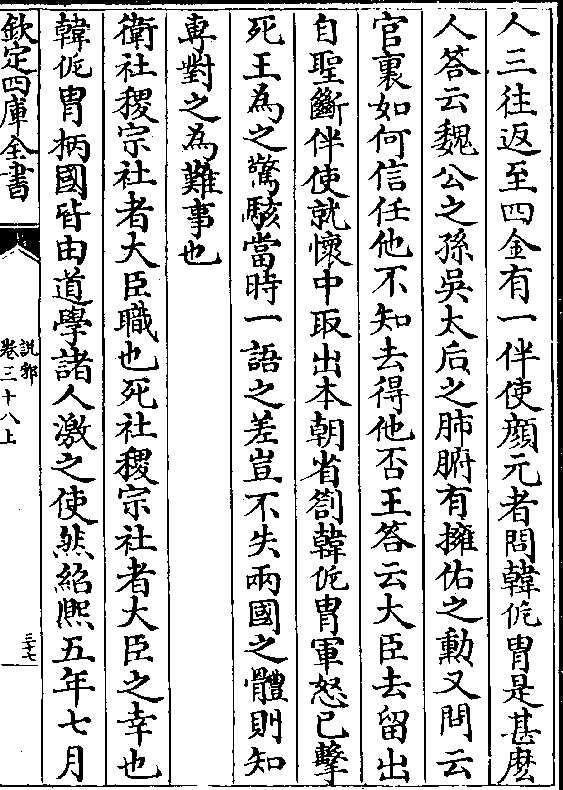 人三往返至四金有一伴使顔元者問韓侂胄是甚麽
人答云魏公之孫吳太后之肺腑有擁佑之勲又問云
官裏如何信任他不知去得他否王答云大臣去留出
自聖斷伴使就懷中取出本朝省劄韓侂胄軍怒已擊
死王為之驚駭當時一語之差豈不失兩國之體則知
専對之為難事也
衛社稷宗社者大臣職也死社稷宗社者大臣之幸也
韓侂胄柄國皆由道學諸人激之使然紹熈五年七月
欽定四庫全書
說郛
卷三十八上
三七